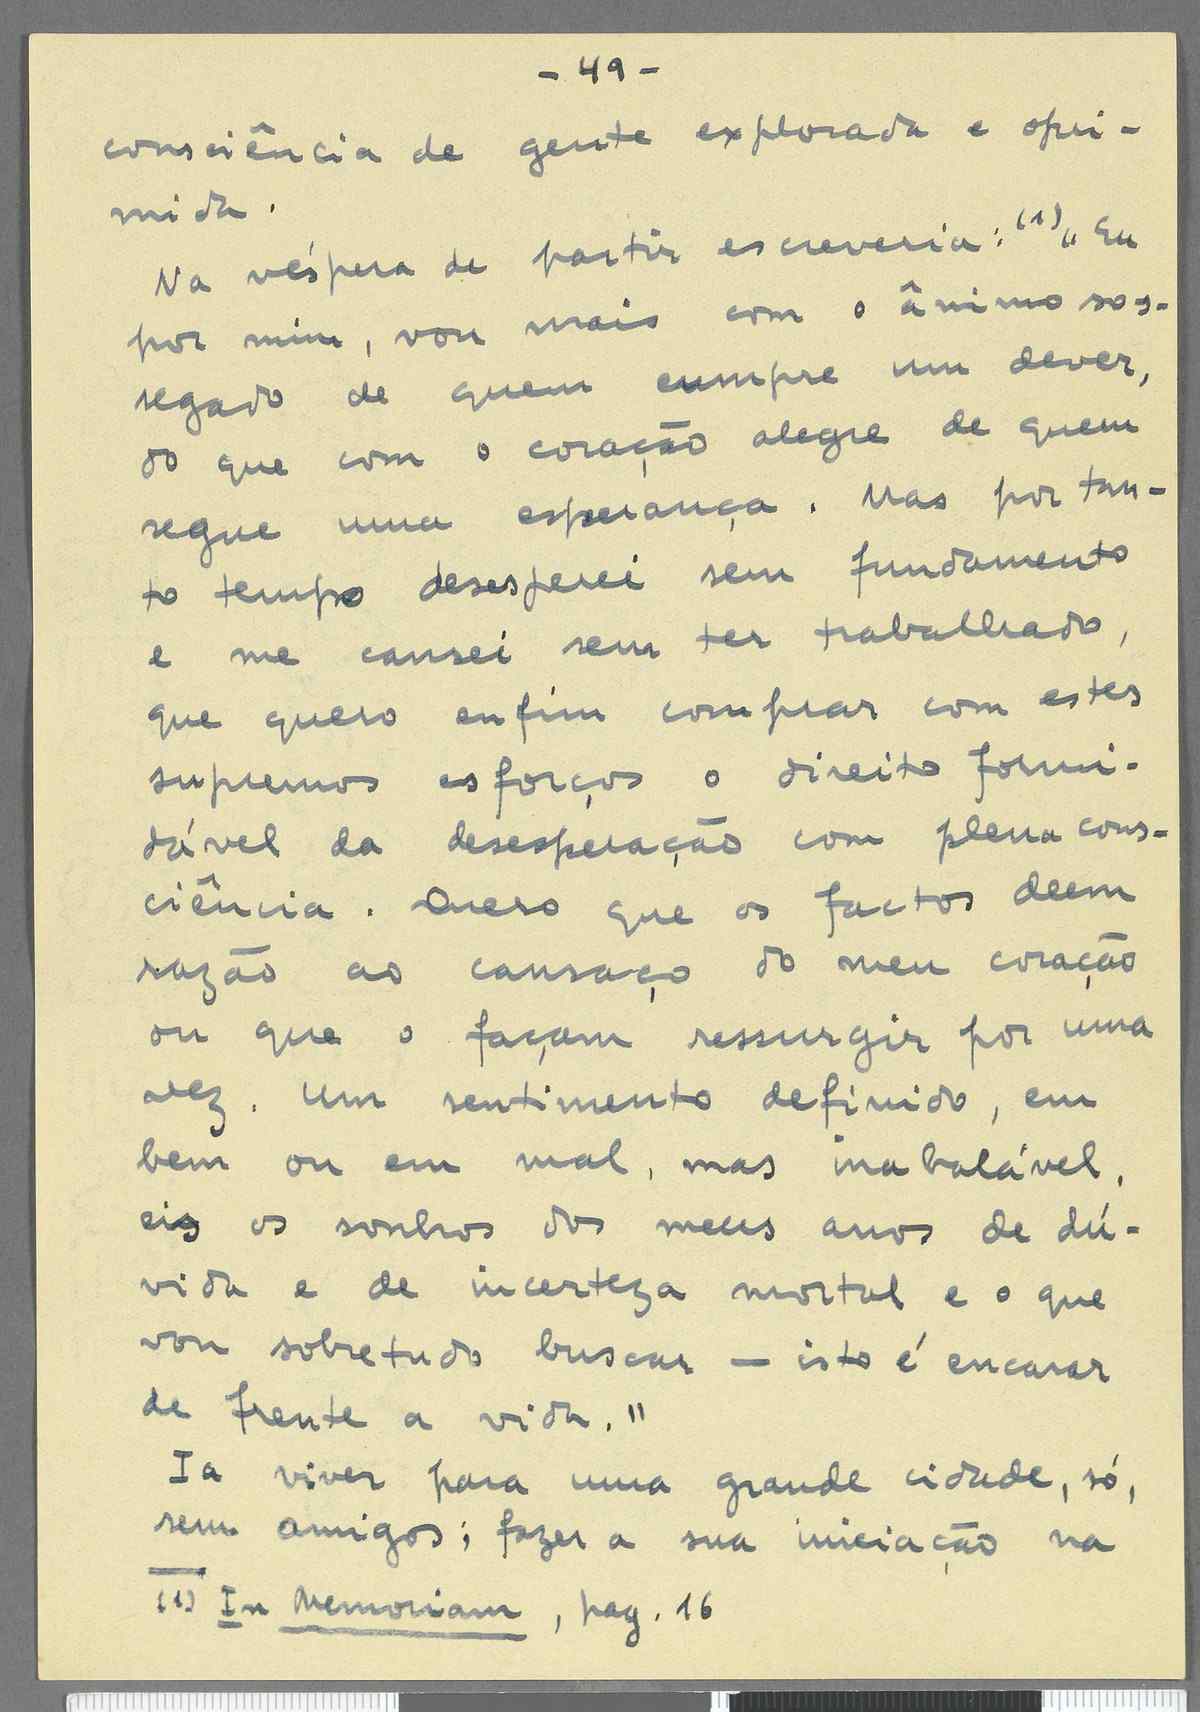 - 49 -
consciência de gente explorada e opri-
mida.
Na véspera de partir escreveria: (1) "Eu
por mim, vou mais com o ânimo sos-
segado de quem cumpre um dever,
do que com o coração alegre de quem
segue uma esperança. Mas por tan-
to tempo desesperei sem fundamento
e me cansei sem ter trabalhado,
que quero enfim comprar com estes
supremos esforços o direito formi-
dável da desesperação com plena cons-
ciência. Quero que os factos deem
razão ao cansaço do meu coração
ou que o façam ressurgir por uma
vez. Um sentimento definido, em
bem ou em mal, mas inabalável,
eis os sonhos dos meus anos de dú-
vida e de incerteza mortal e o que
vou sobretudo buscar — isto é encarar
de frente a vida."
Ia viver para uma grande cidade, só,
sem amigos; fazer a sua iniciação na
(1) In Memoriam, pag. 16